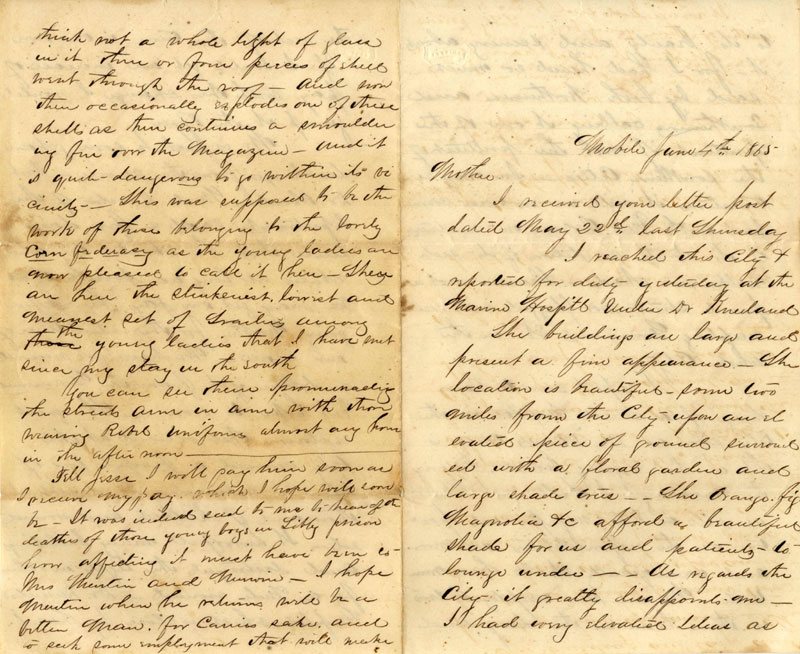 think not a whole light of glass
in it three or four pieces of shell
went through the roof — and now
then occasionally explodes one of these
shells as there continues a smoulder
ing fire over the Magazine — and it
is quite dangerous to go within its vi
cinity — This was supposed to be the
work of those belonging to the lordy
Corn federacy as the young ladies are
now pleased to call it here — There
are here the stinkeniest, lowest and
meanest set of Traitors among
those the young ladies that I have met
since my stay in the south
You can see them promenading
the streets arm in arm with those
wearing Rebel uniforms almost any hour
in the after noon —
Tell Jesse I will pay him soon as
I receive my pay, which I hope will soon
be — It was indeed sad to me to hear of the
deaths of those young boys in Libby prison
how affecting it must have been to
Mrs Martin and — I hope
Martin when he returns will be a
better Man, for Carries sake, and
to seek some employment that will make
Mobile June 4th 1865
Mother
I received your letter post
dated May 22d last Thursday
I reached this City &
reported for duty yesterday at the
Marine Hospitl Under Dr Kneeland
The buildings are large and
present a fine appearance — The
location is beautiful — some two
miles from the City upon an el
evated piece of ground surround
ed with a floral garden and
large shade trees — — The Orange, fig
Magnolia &c afford a beautiful
shade for us and patients to
lounge under — — As regards the
City it greatly disappoints me —
I had very elevated Ideas as